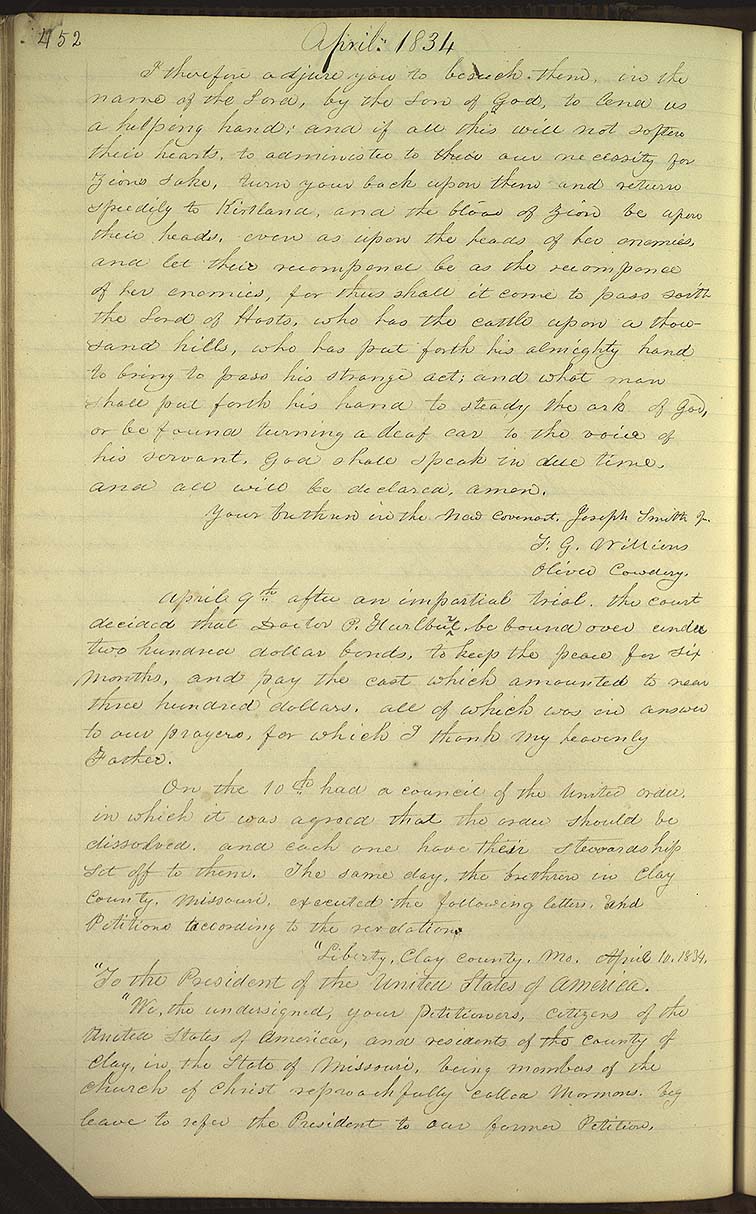 452
April. 1834
I therefore adjure you to beseech them, in the
name of the Lord, by the Son of God, to lend us
a helping hand; and if all this will not soften
their hearts, to administer to their our necessity for
Zions sake, turn your back upon them and return
speedily to Kirtland, and the blood of Zion be upon
their heads, even as upon the heads of her enemies,
and let their recompence be as the recompence
of her enemies, for thus shall it come to pass saith
the Lord of Hosts, who has the cattle upon a thou-
sand hills, who has put forth his almighty hand
to bring to pass his strange act; and what man
shall put forth his hand to steady the ark of God,
or be found turning a deaf ear to the voice of
his servant. God shall speak in due time,
and all will be declared, amen.
Your brethren in the New Covenant. Joseph Smith Jr.
F. G. Williams
Oliver Cowdery.
April 9th after an impartial trial. the court
decided that Doctor P. Hurlbut, be bound over under
two hundred dollar bonds, to keep the peace for six
months, and pay the cost which amounted to near
three hundred dollars, all of which was in answer
to our prayers, for which I thank my heavenly
Father.
On the 10th had a council of the United order,
in which it was agreed that the order should be
dissolved, and each one have their stewardship
set off to them. The same day, the brethren in Clay
County, Missouri, executed the following letters, and
Petitions according to the revelation.
"Liberty, Clay County, Mo. April 10, 1834.
"To the President of the United States of America.
"We, the undersigned, your petitioners, citizens of the
United States of America, and residents of the County of
Clay, in the State of Missouri, being members of the
Church of Christ reproachfully called Mormons. beg
leave to refer the President to our former Petition,